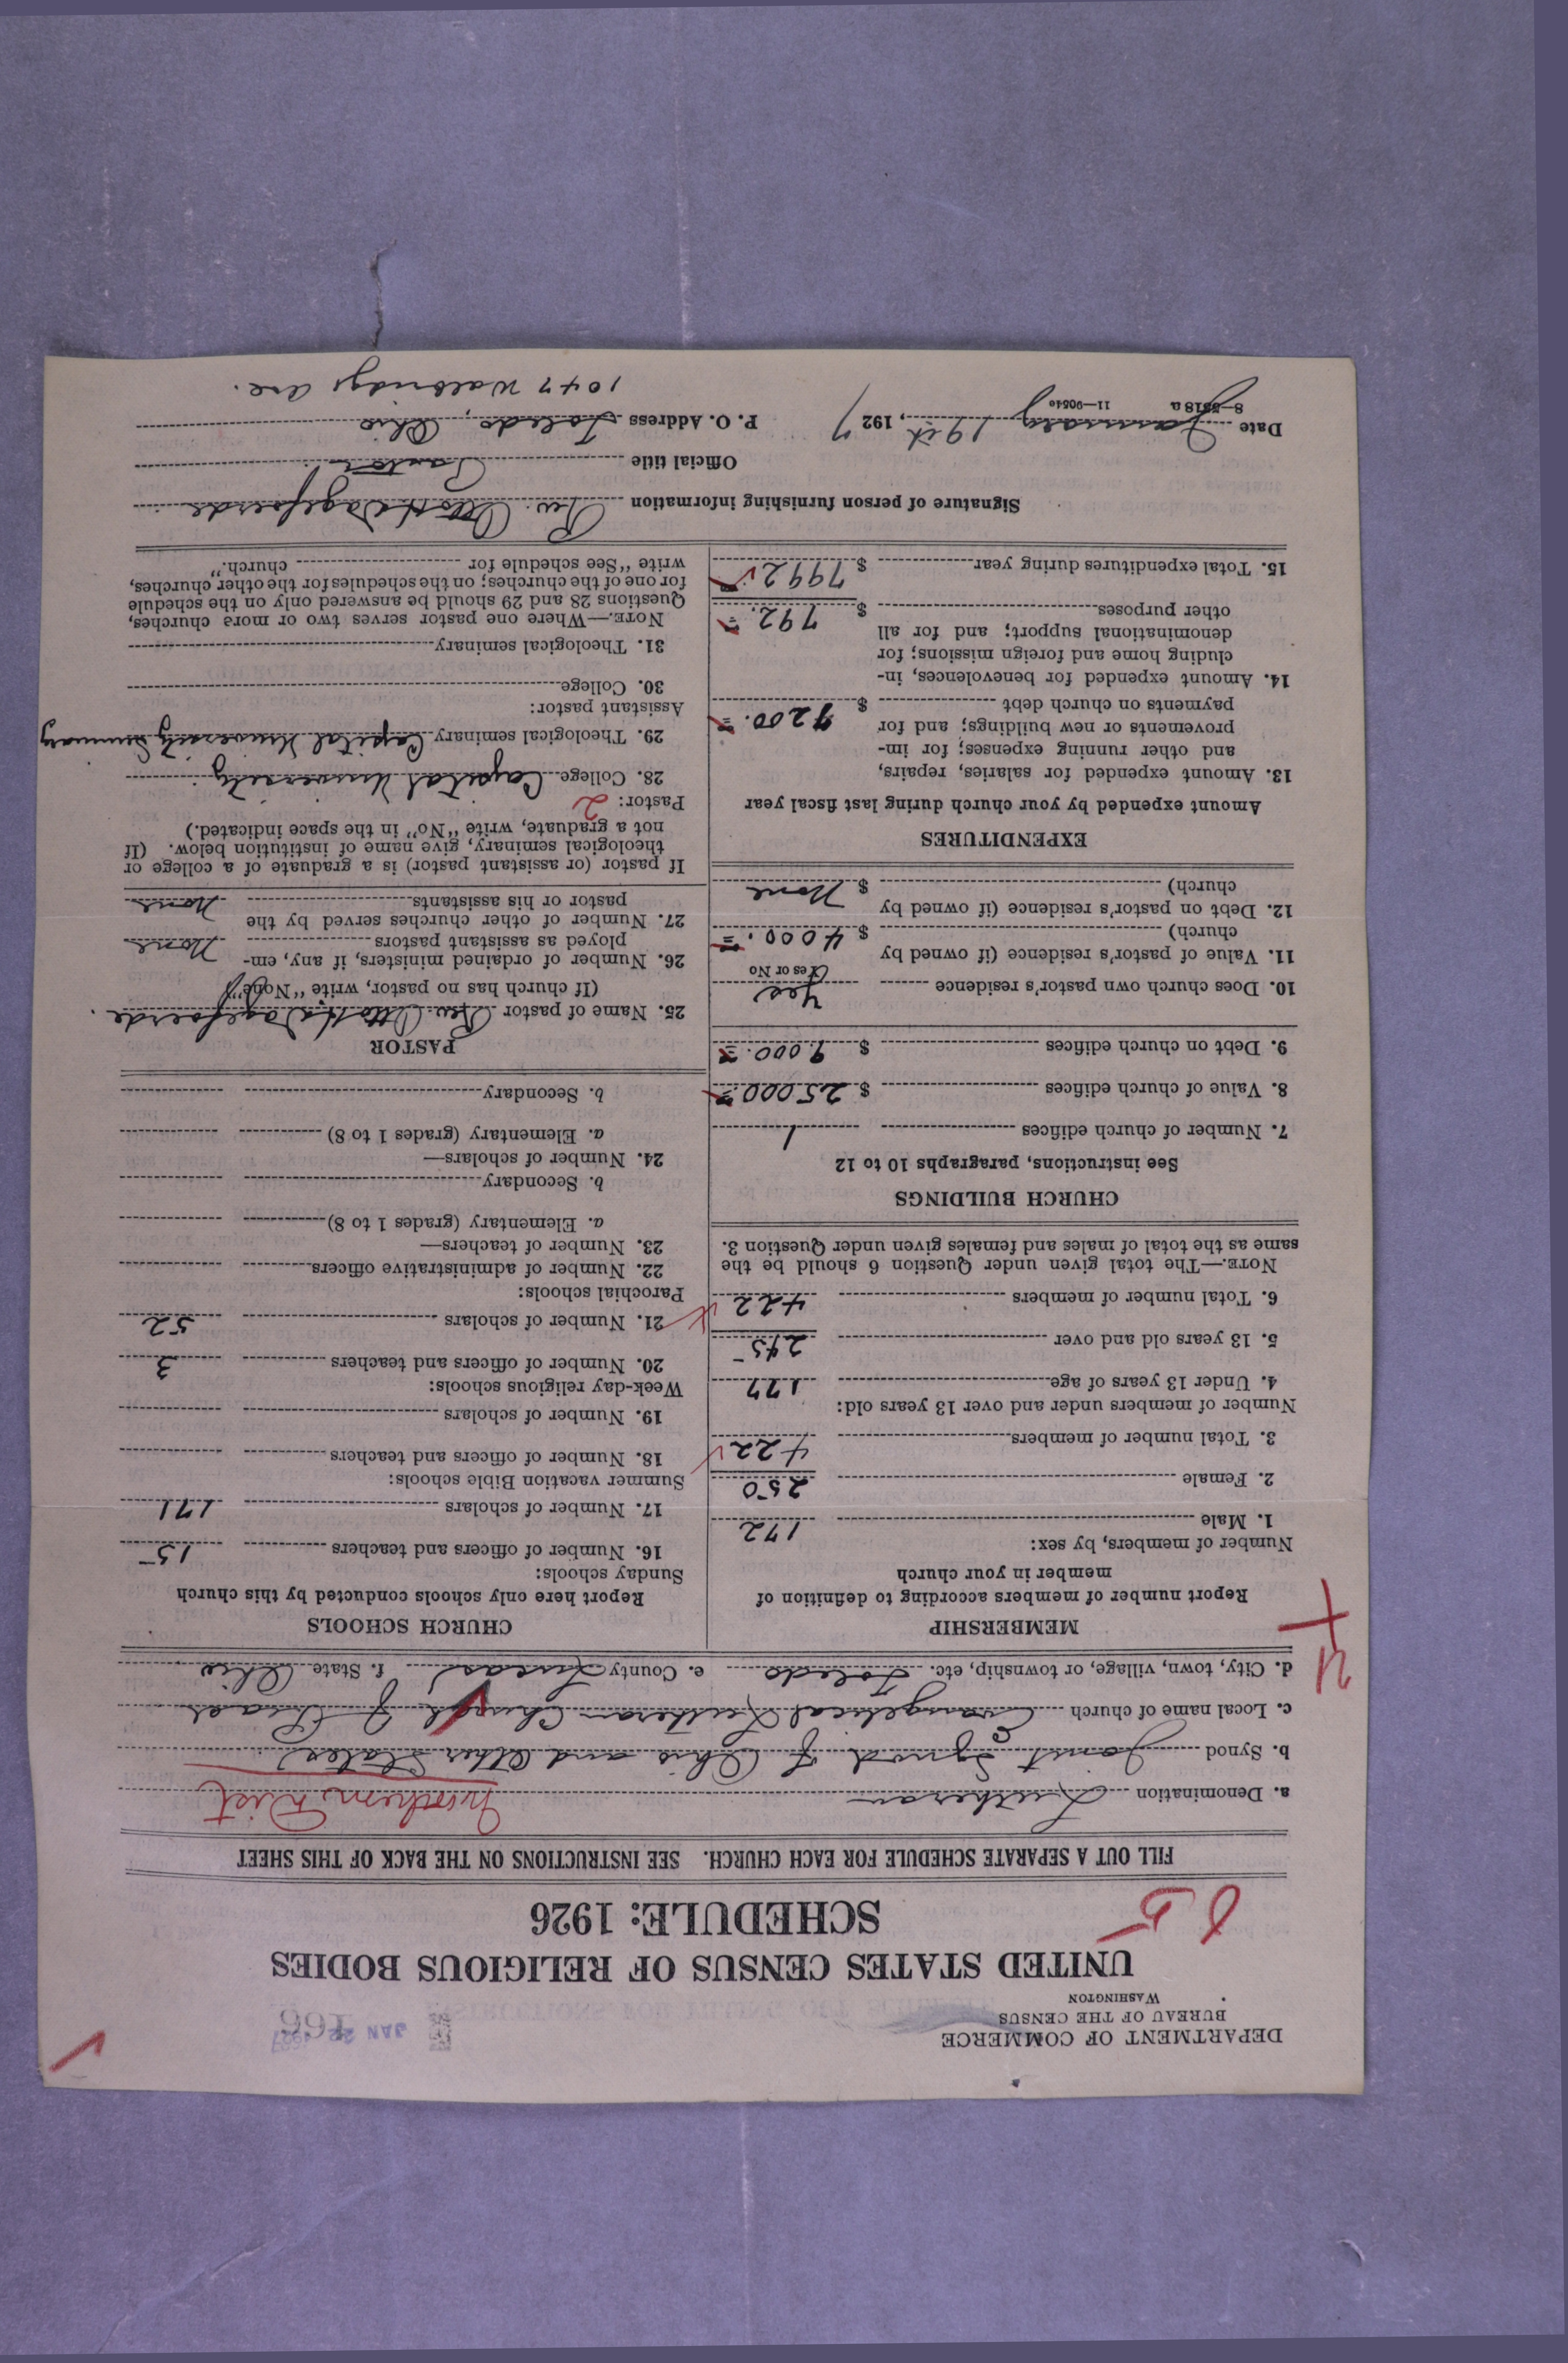 DEPARTMENT OF COMMERCE
BUREAU OF THE CENSUS
WASHINGTON
JAN 22 1927
166
UNITED STATES CENSUS OF RELIGIOUS BODIES
SCHEDULE: 1926
FILL OUT A SEPARATE SCHEDULE FOR EACH CHURCH. SEE INSTRUCTIONS ON THE BACK OF THIS SHEET
a. Denomination Lutheran Northern Dist
b. Synod Joint Synod of Ohio and Other States
c. Local name of church Evangelical Lutheran Church of
d. City, town, village, or township, etc. Toledo e. County Lucas f. State Ohio
MEMBERSHIP
Report number of members according to definition of
member in your church
Number of members, by sex:
1. Male 172
2. Female 250
3. Total number of members 422
Number of members under and over 13 years old:
4. Under 13 years of age 177
5. 13 years old and over 245
6. Total number of members 422
NOTE.—The total given under Question 6 should be the
same as the total of males and females given under Question 3.
CHURCH BUILDINGS
See instructions, paragraphs 10 to 12
7. Number of church edifices 1
8. Value of church edifices $ 25000.
9. Debt on church edifices $ 9.000.
10. Does church own pastor's residence Yes
Yes or No
11. Value of pastor's residence (if owned by
church) $ 4000.
12. Debt on pastor's residence (if owned by
church) $ None
EXPENDITURES
Amount expended by your church during last fiscal year
13. Amount expended for salaries, repairs,
and other running expenses; for im-
provements or new buildings; and for
payments on church debt $ 7200.
14. Amount expended for benevolences, in-
cluding home and foreign missions; for
denominational support; and for all
other purposes $ 792.
15. Total expenditures during year $ 7992
CHURCH SCHOOLS
Report here only schools conducted by this church
Sunday schools:
16. Number of officers and teachers 15
17. Number of scholars 171
Summer vacation Bible schools:
18. Number of officers and teachers
19. Number of scholars
Week-day religious schools:
20. Number of officers and teachers 3
21. Number of scholars 52
Parochial schools:
22. Number of administrative officers
23. Number of teachers—
a. Elementary (grades 1 to 8)
b. Secondary
24. Number of scholars—
a. Elementary (grades 1 to 8)
b. Secondary
PASTOR
25. Name of pastor Rev. Otto H. Dagefoerde.
(If church has no pastor, write "None")
26. Number of ordained ministers, if any, em-
ployed as assistant pastors None
27. Number of other churches served by the
pastor or his assistants None
If pastor (or assistant pastor) is a graduate of a college or
theological seminary, give name of institution below. (If
not a graduate, write "No" in the space indicated.)
Pastor: 2
28. College Capital University
29. Theological seminary Capital University Seminary
Assistant pastor:
30. College
31. Theological seminary
NOTE.—Where one pastor serves two or more churches,
Questions 28 and 29 should be answered only on the schedule
for one of the churches; on the schedules for the other churches,
write "See schedule for church."
Signature of person furnishing information Rev. Otto H. Dagefoerde
Official title Pastor
Date January 19th, 1927 P. O. Address Toledo, Ohio
8—5518a 11—9051
1047 Walbridge Ave.